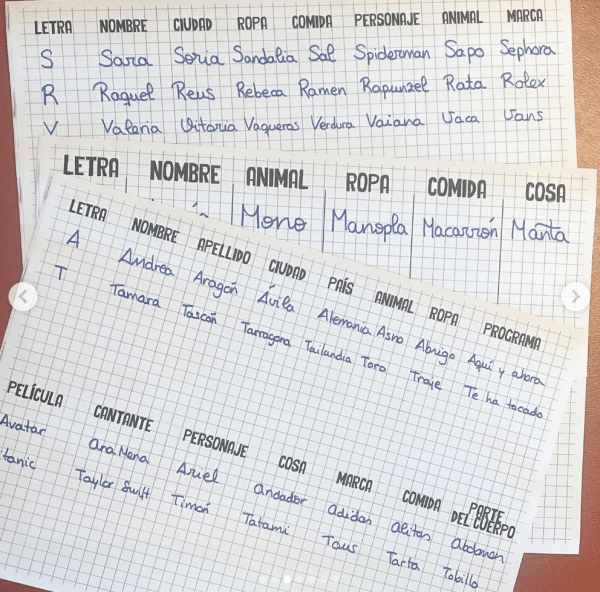 LETRA NOMBRE CIUDAD ROPA COMIDA PERSONAJE ANIMAL MARCA
S Sara Soria Sandalia Sal Spiderman Sapo Sephora
R Raquel Reus Rebeca Ramen Rapunzel Rata Rolex
V Valeria Vitoria Vaqueros Verdura Vaiana Vaca Vans
LETRA NOMBRE ANIMAL ROPA COMIDA COSA
Mono Manopla Macarrón Manta
LETRA NOMBRE APELLIDO CIUDAD PAÍS ANIMAL ROPA PROGRAMA
A Andrea Aragón Ávila Alemania Asno Abrigo Aquí y ahora
T Tamara Tascón Tarragona Tailandia Toro Traje Te ha tocado
PELÍCULA CANTANTE PERSONAJE COSA MARCA COMIDA PARTE DEL CUERPO
Avatar Ana Mena Ariel Andador Adidas Alitas Abdomen
itanic Taylor Swift Timón Tatami Tous Tarta Tobillo